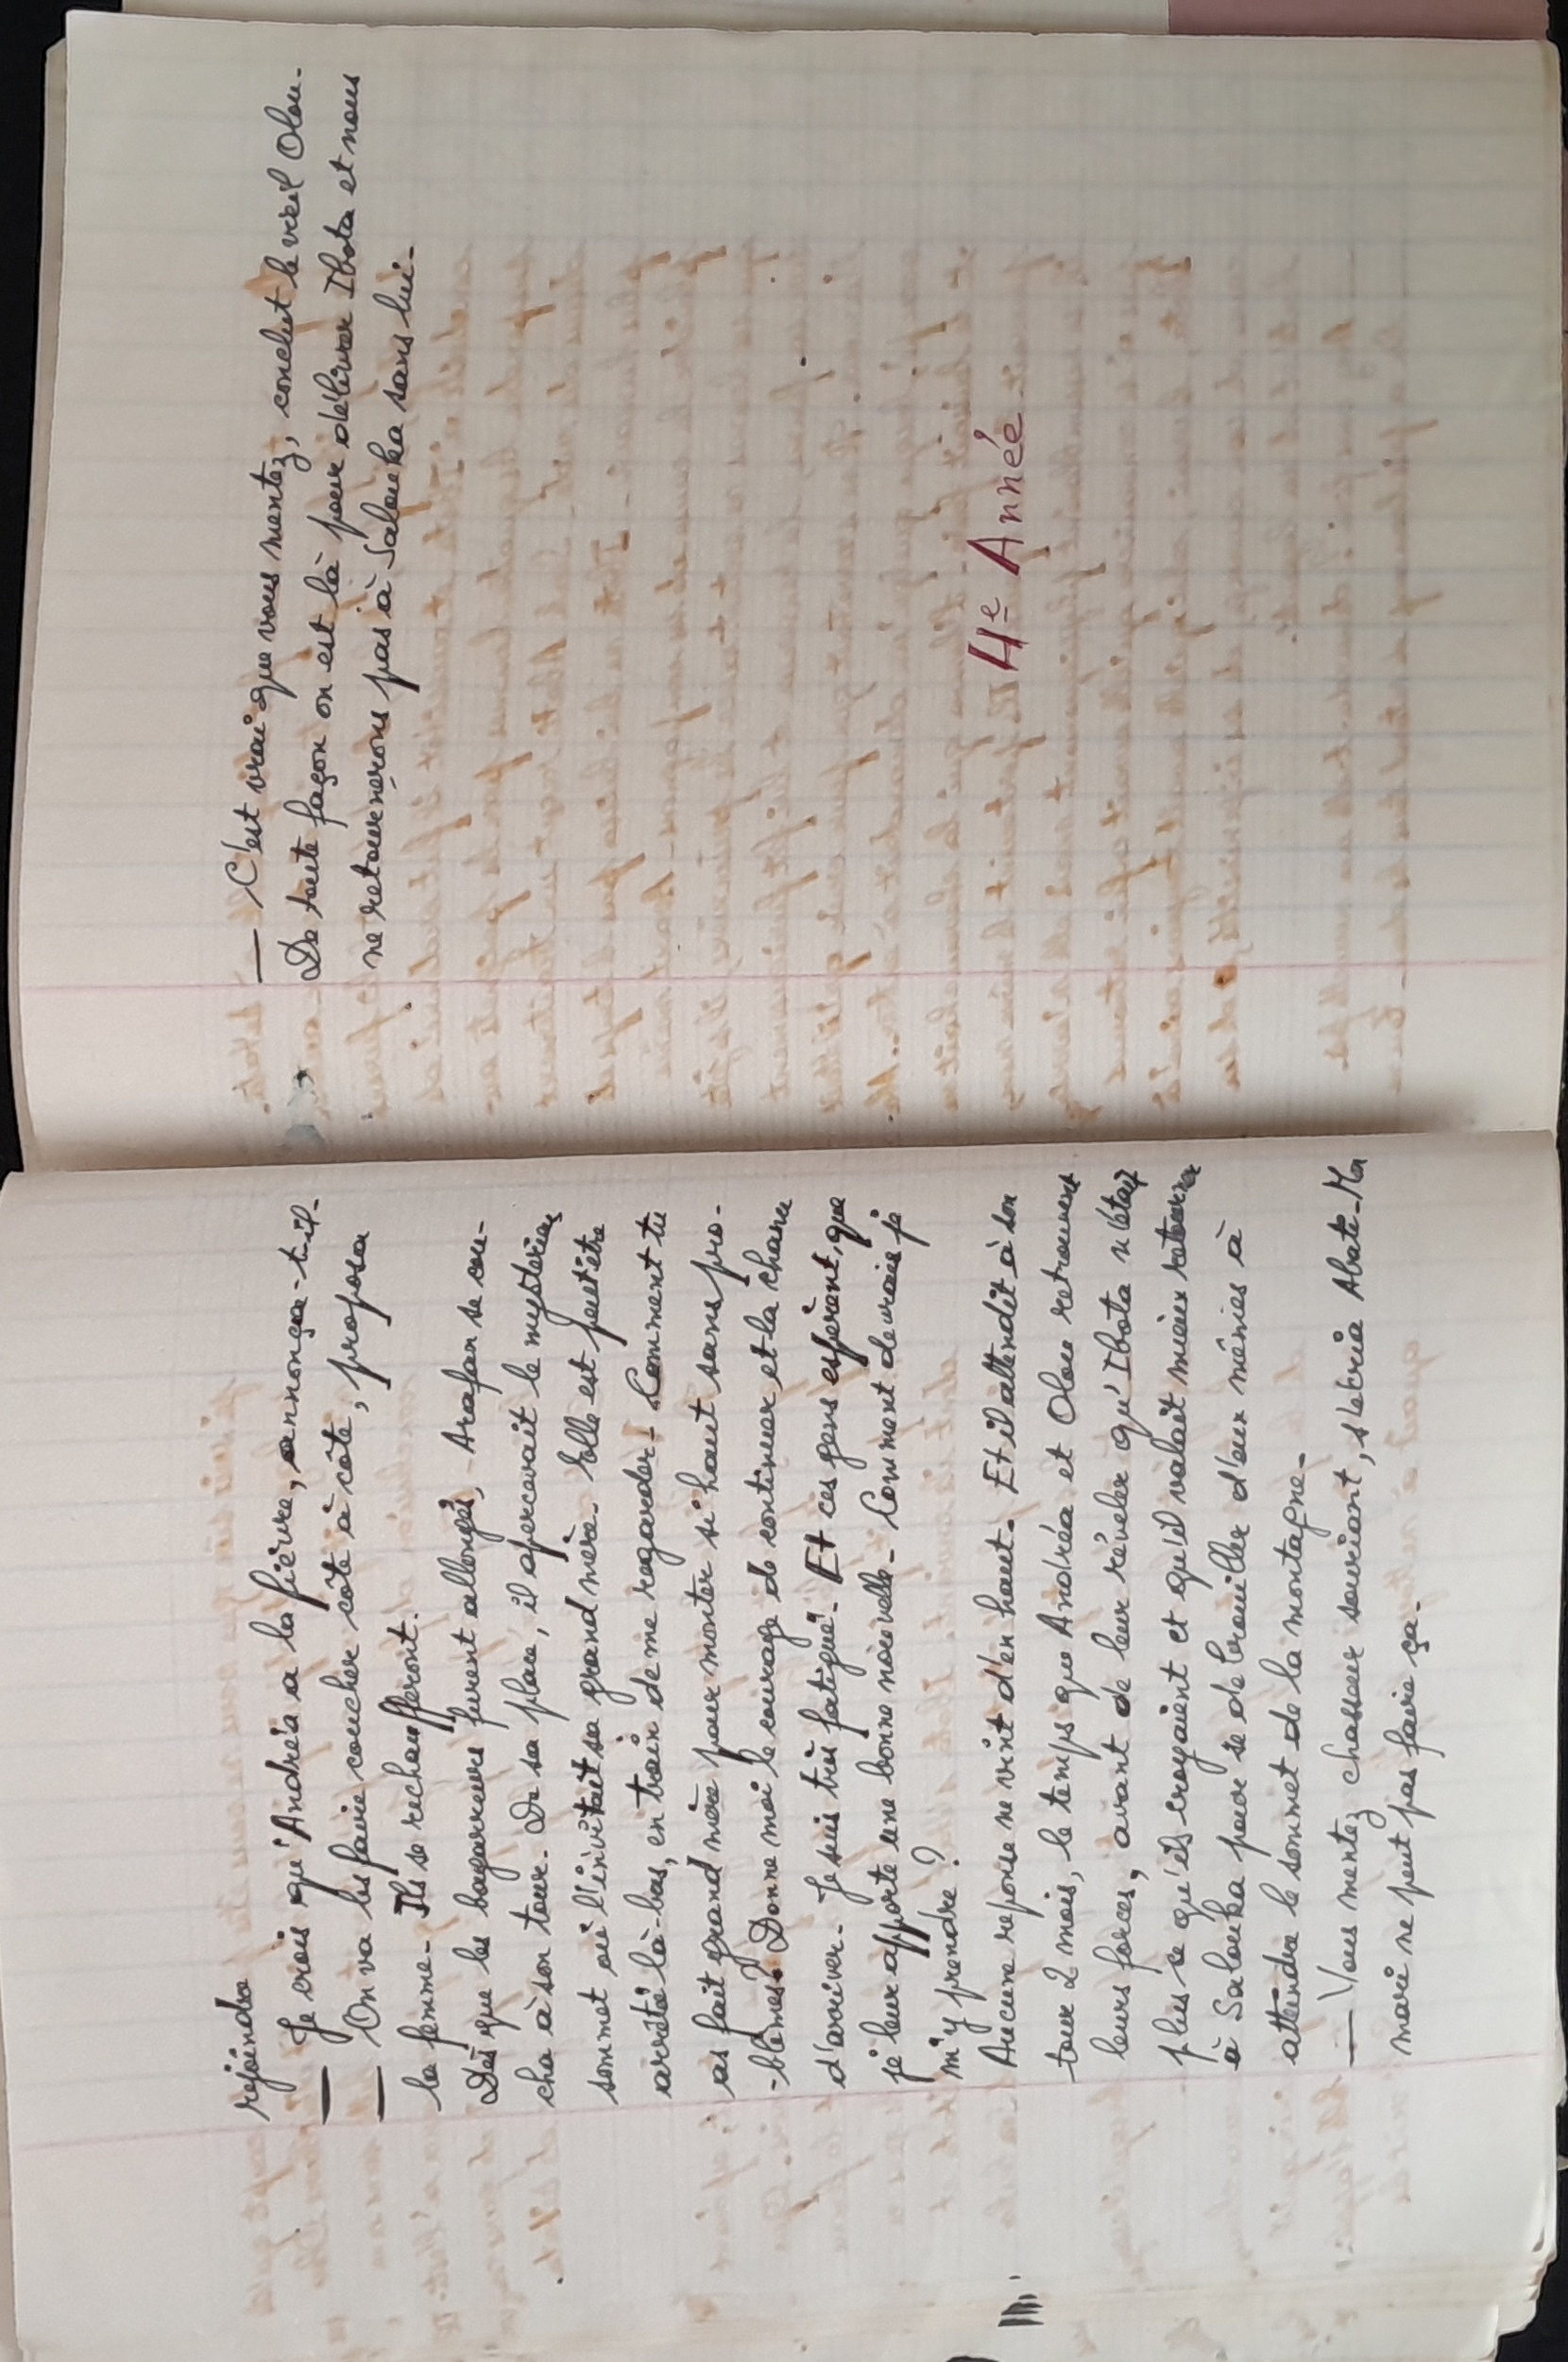 rejoindre
— Je crois qu'Andréa a la fièvre, annonça-t-il-
— On va les faire coucher côte à côte, proposa
la femme- Ils se rechaufferont.
Dès que les bagarreurs furent allongés, Arafan se cou-
cha à son tour. De sa place, il apercevait le mystérieux
sommet où l'invitait sa grand mère- Elle est peut être
arrêtée là-bas, en train de me regarder- Comment tu
as fait grand mère pour monter si haut sans pro-
-blèmes? Donne moi le courage de continuer et la chance
d'arriver- Je suis très fatigué- Et ces gens espèrent, que
je leur apporte une bonne nouvelle- Comment devrais je
m'y prendre ?
Aucune reponse ne vint d'en haut. Et il attendit à son
tour 2 mois, le temps que Andréa et Olou retrouvent
leurs forces, avant de leur révéler qu'Ibota n'était
plus ce qu'ils croyaient et qu'il valait mieux retourner
à Salouka pour se debrouiller d'eux mêmes à
atteindre le sommet de la montagne-
— Vous mentez chasseur souriant, s'ecria Abate- Mon
mari ne peut pas faire ça-
— C'est vrai que vous mentez, conclut le vieil Olou-
De toute façon on est là pour délivrer Ibota et nous
ne retournerons pas à Salouka sans lui-
4e Année